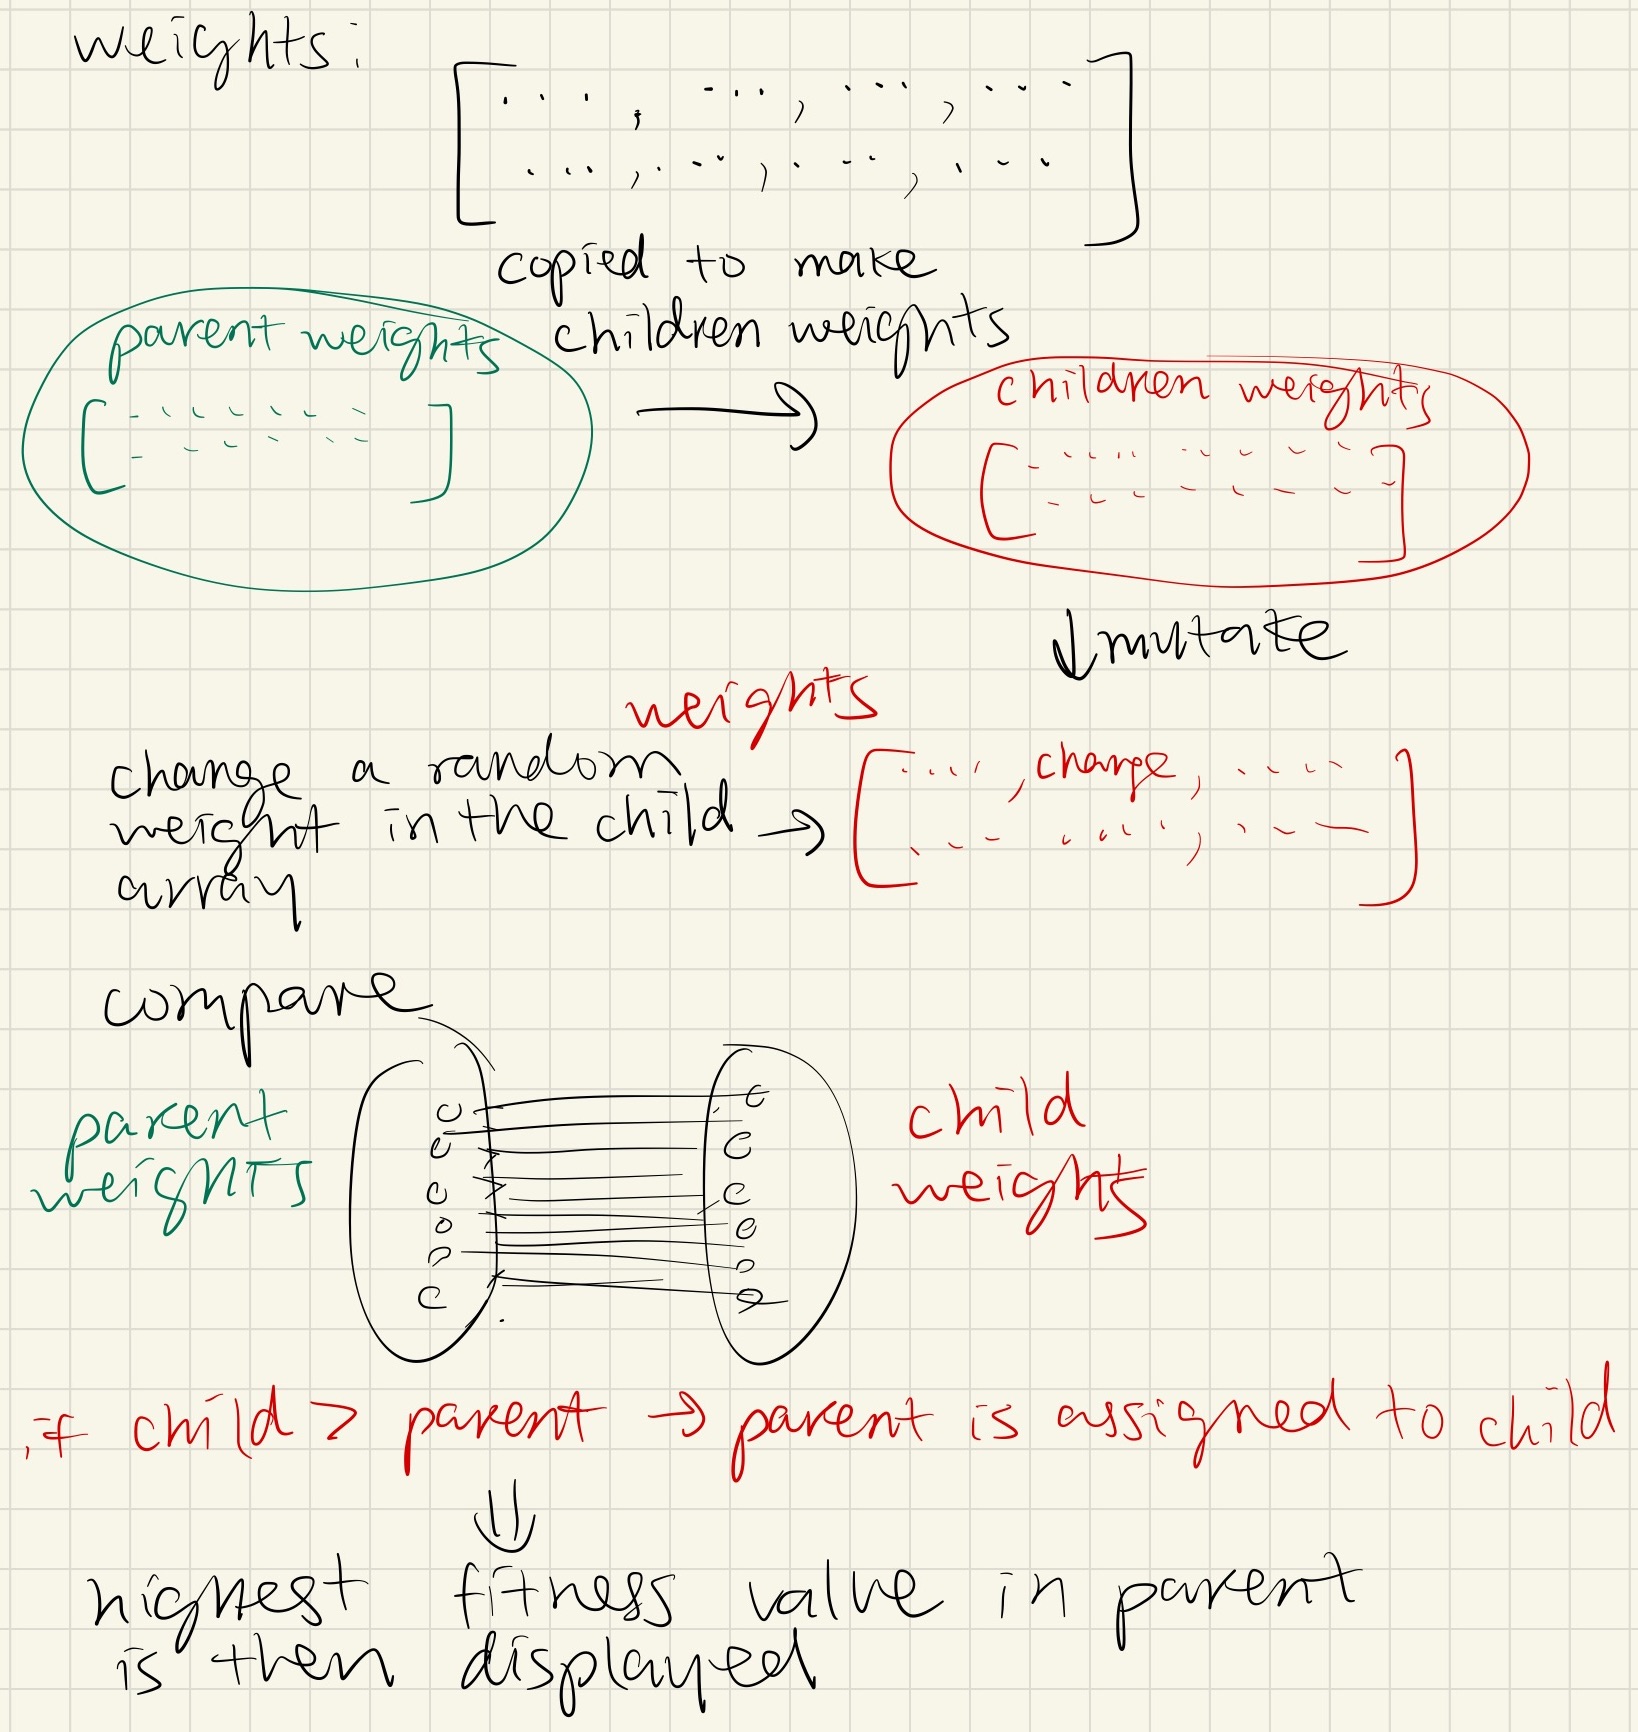 weights:
copied to make
children weights
parent weights
children weights
mutate
weights
change a random
weight in the child
array
change
compare
parent
weights
child
weights
if child > parent → parent is assigned to child
highest fitness value in parent
is then displayed